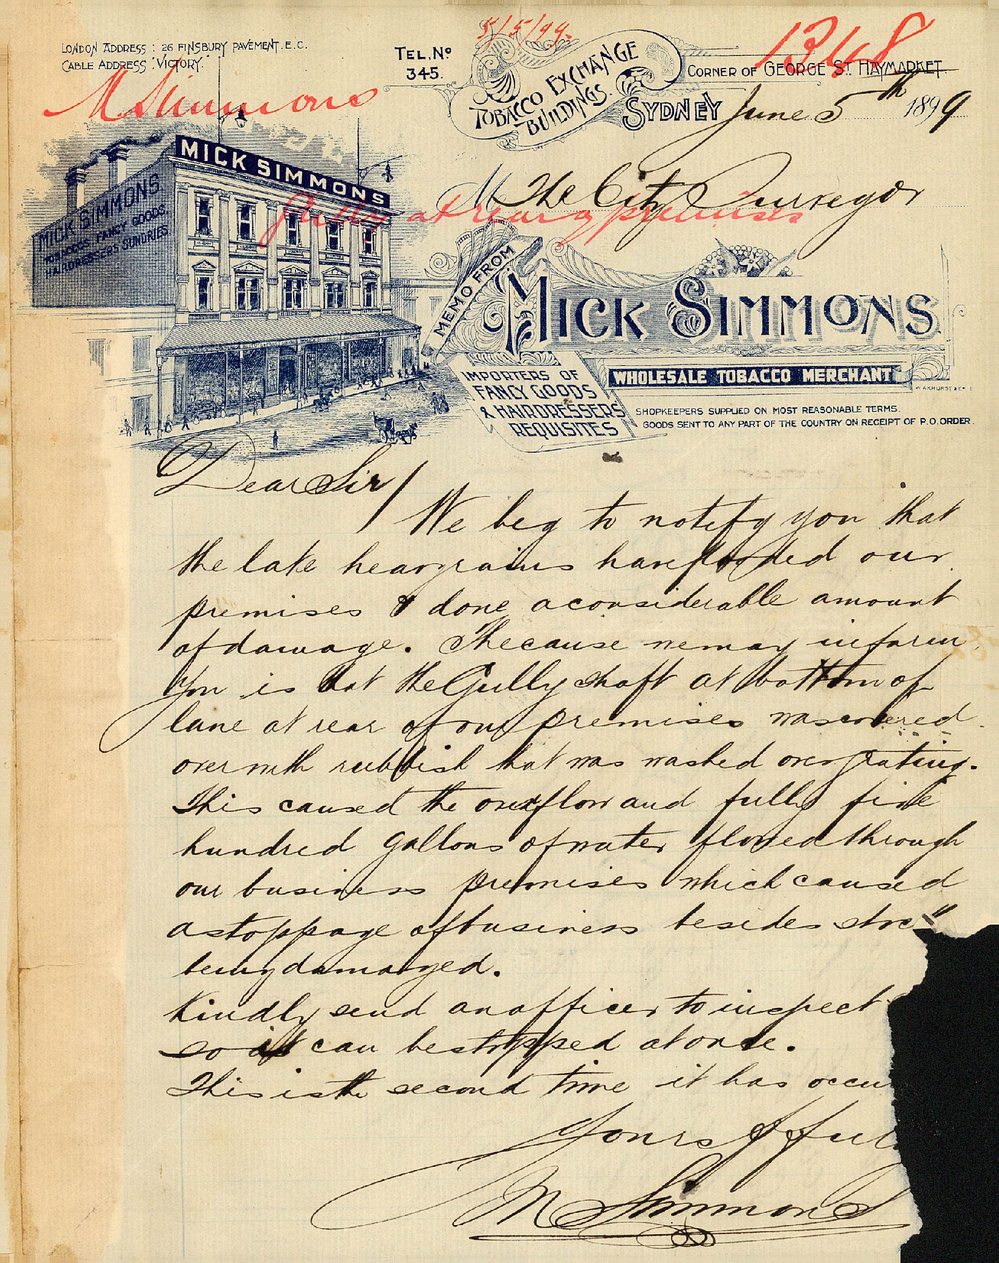 LONDON ADDRESS : 26 FINSBURY PAVEMENT. E.C.
CABLE ADDRESS : VICTORY.
M Simmons
TEL. No
345.
5/5/99
TOBACCO EXCHANGE
BUILDINGS.
SYDNEY
1348
CORNER OF GEORGE ST. HAYMARKET.
June 5th 1899
M The City Surveyor
Gully at rear of premises
MICK SIMMONS
MICK SIMMONS
TOBACCOS FANCY GOODS
HAIRDRESSERS SUNDRIES
MEMO FROM
MICK SIMMONS
WHOLESALE TOBACCO MERCHANT
IMPORTERS OF
FANCY GOODS
& HAIRDRESSERS
REQUISITES
SHOPKEEPERS SUPPLIED ON MOST REASONABLE TERMS.
GOODS SENT TO ANY PART OF THE COUNTRY ON RECEIPT OF P.O. ORDER.
Dear Sir/
We beg to notify you that
the late heavy rains have flooded our
premises & done a considerable amount
of damage. The cause we may inform
you is that the Gully shaft at bottom of
lane at rear of our premises was covered
over with rubbish that was washed over grating.
This caused the overflow and fully five
hundred gallons of water flowed through
our business premises which caused
a stoppage of business besides
being damaged.
Kindly send an officer to inspect
so it can be stopped at once.
This is the second time it has occu
Yours
M Simmons